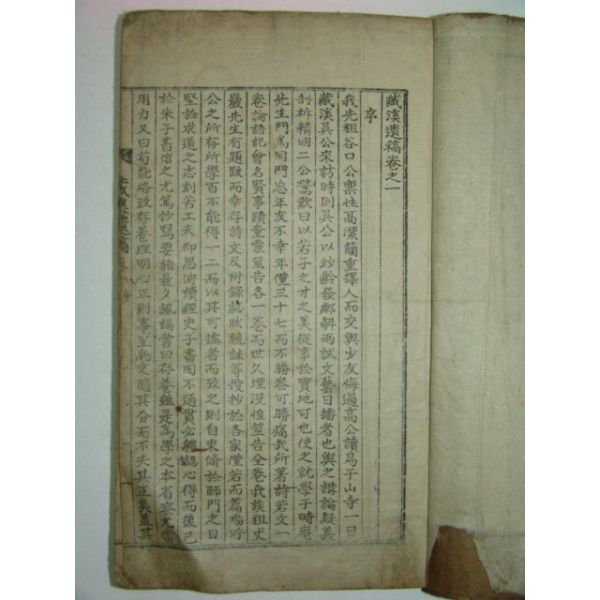 藏溪遺稿卷之一
序
我先祖谷口公稟性高潔簡重擇人而交與少友侮過高公讀易于山寺一日
藏溪吳公來訪時則吳公以妙齡發鄕解兩試文藝日播者也與之講論疑義
剖析精明二公驚歎曰以若子之才之美從事於實地可也使之就學于畸庵
先生門爲同門忘年友不幸年僅三十七而不勝喪可勝痛哉所著詩若文一
卷論語記會名賢事蹟童蒙筮告各一卷而世久堙沒惟筮告全卷我族祖史
巖先生有題跋而幸存詩文及附錄誌狀輓誄等搜抄於各家僅若而篇噫嘻
公之所存所學百不能得一二而以其可據者而攷之則自束脩於師門之日
堅於求道之志刻苦工夫仰思俯讀經史子書罔不通貫必體認心得而後已
於朱子書信之尤篤抄寫要語最久佩誦嘗曰存養雖是爲學之本省察尤當
用力又曰苟能格致存養理明心正則事至物來隨其分而不失其正矣並其